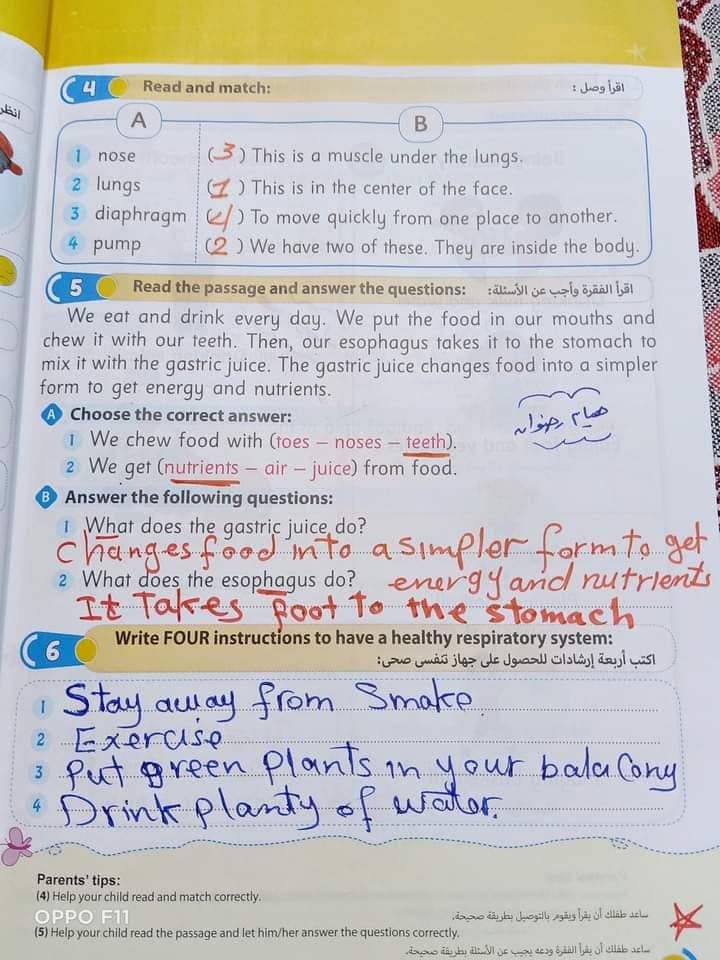 انظر
4 Read and match: اقرأ وصل :
A B
1 nose (3) This is a muscle under the lungs.
2 lungs (1) This is in the center of the face.
3 diaphragm (4) To move quickly from one place to another.
4 pump (2) We have two of these. They are inside the body.
5 Read the passage and answer the questions: اقرأ الفقرة وأجب عن الأسئلة:
We eat and drink every day. We put the food in our mouths and
chew it with our teeth. Then, our esophagus takes it to the stomach to
mix it with the gastric juice. The gastric juice changes food into a simpler
form to get energy and nutrients.
A Choose the correct answer:
1 We chew food with (toes – noses – teeth).
2 We get (nutrients – air – juice) from food.
هيام رضوان
B Answer the following questions:
1 What does the gastric juice do?
Changes food into a simpler form to get
energy and nutrients
2 What does the esophagus do?
It Takes foot to the stomach
6 Write FOUR instructions to have a healthy respiratory system:
اكتب أربعة إرشادات للحصول على جهاز تنفسى صحى:
1 Stay away from Smake.
2 Exercise
3 Put green plants in your bala Cony
4 Drink planty of water.
Parents' tips:
(4) Help your child read and match correctly.
ساعد طفلك أن يقرأ ويقوم بالتوصيل بطريقة صحيحة.
OPPO F11
(5) Help your child read the passage and let him/her answer the questions correctly.
ساعد طفلك أن يقرأ الفقرة ودعه يجيب عن الأسئلة بطريقة صحيحة.